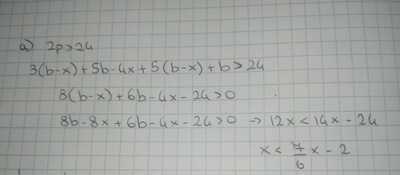 a) 2p>24
3(b-x)+5b-4x+5(b-x)+b>24
8(b-x)+6b-4x-24>0
8b-8x+6b-4x-24>0 → 12x<14x-24
x<7/6x-2